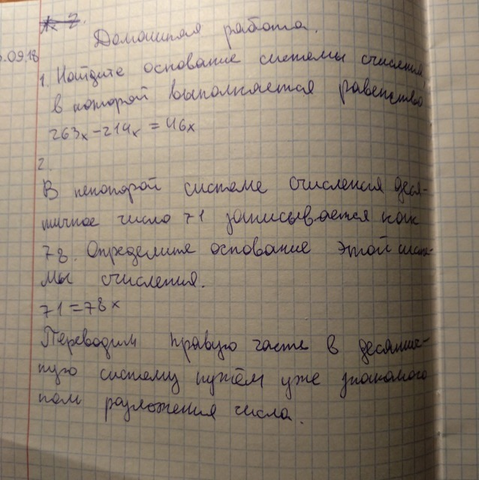 № 2.
Домашняя работа.
.09.18
1. Найдите основание системы счисления
в которой выполняется равенство
263x-214x=46x
2.
В некоторой системе счисления деся-
тичное число 71 записывается как
78. Определите основание этой систе-
мы счисления.
71=78x
Переводим правую часть в десятич-
ную систему путём уже знакомого
нам разложения числа.